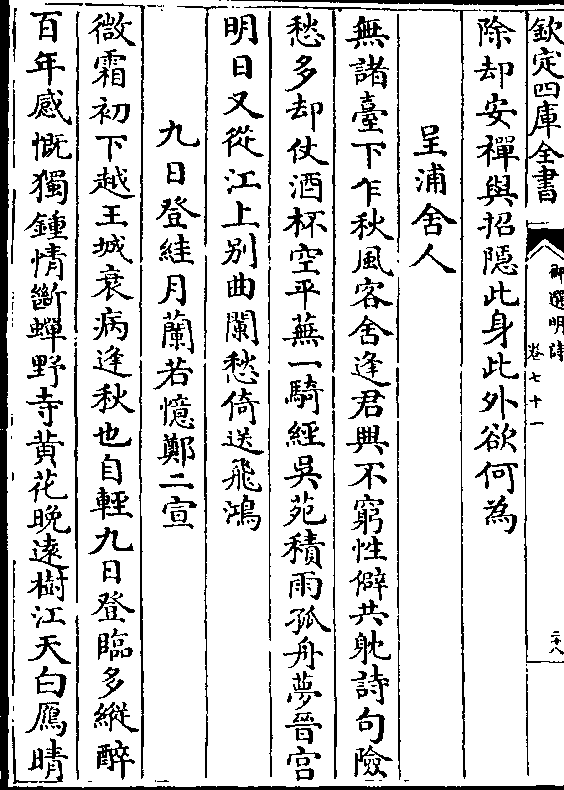 欽定四庫全書
御選明詩
卷七十一
二十八
除却安禪與招隠此身此外欲何為
呈浦舍人
無諸臺下乍秋風客舍逢君興不窮性僻共躭詩句險
愁多却仗酒杯空平蕪一騎經吳苑積雨孤舟夢晉宫
明日又從江上别曲闌愁倚送飛鴻
九日登絓月蘭若憶鄭二宣
微霜初下越王城衰病逢秋也自輕九日登臨多縱醉
百年感慨獨鍾情斷蟬野寺黄花晚遠樹江天白鴈晴